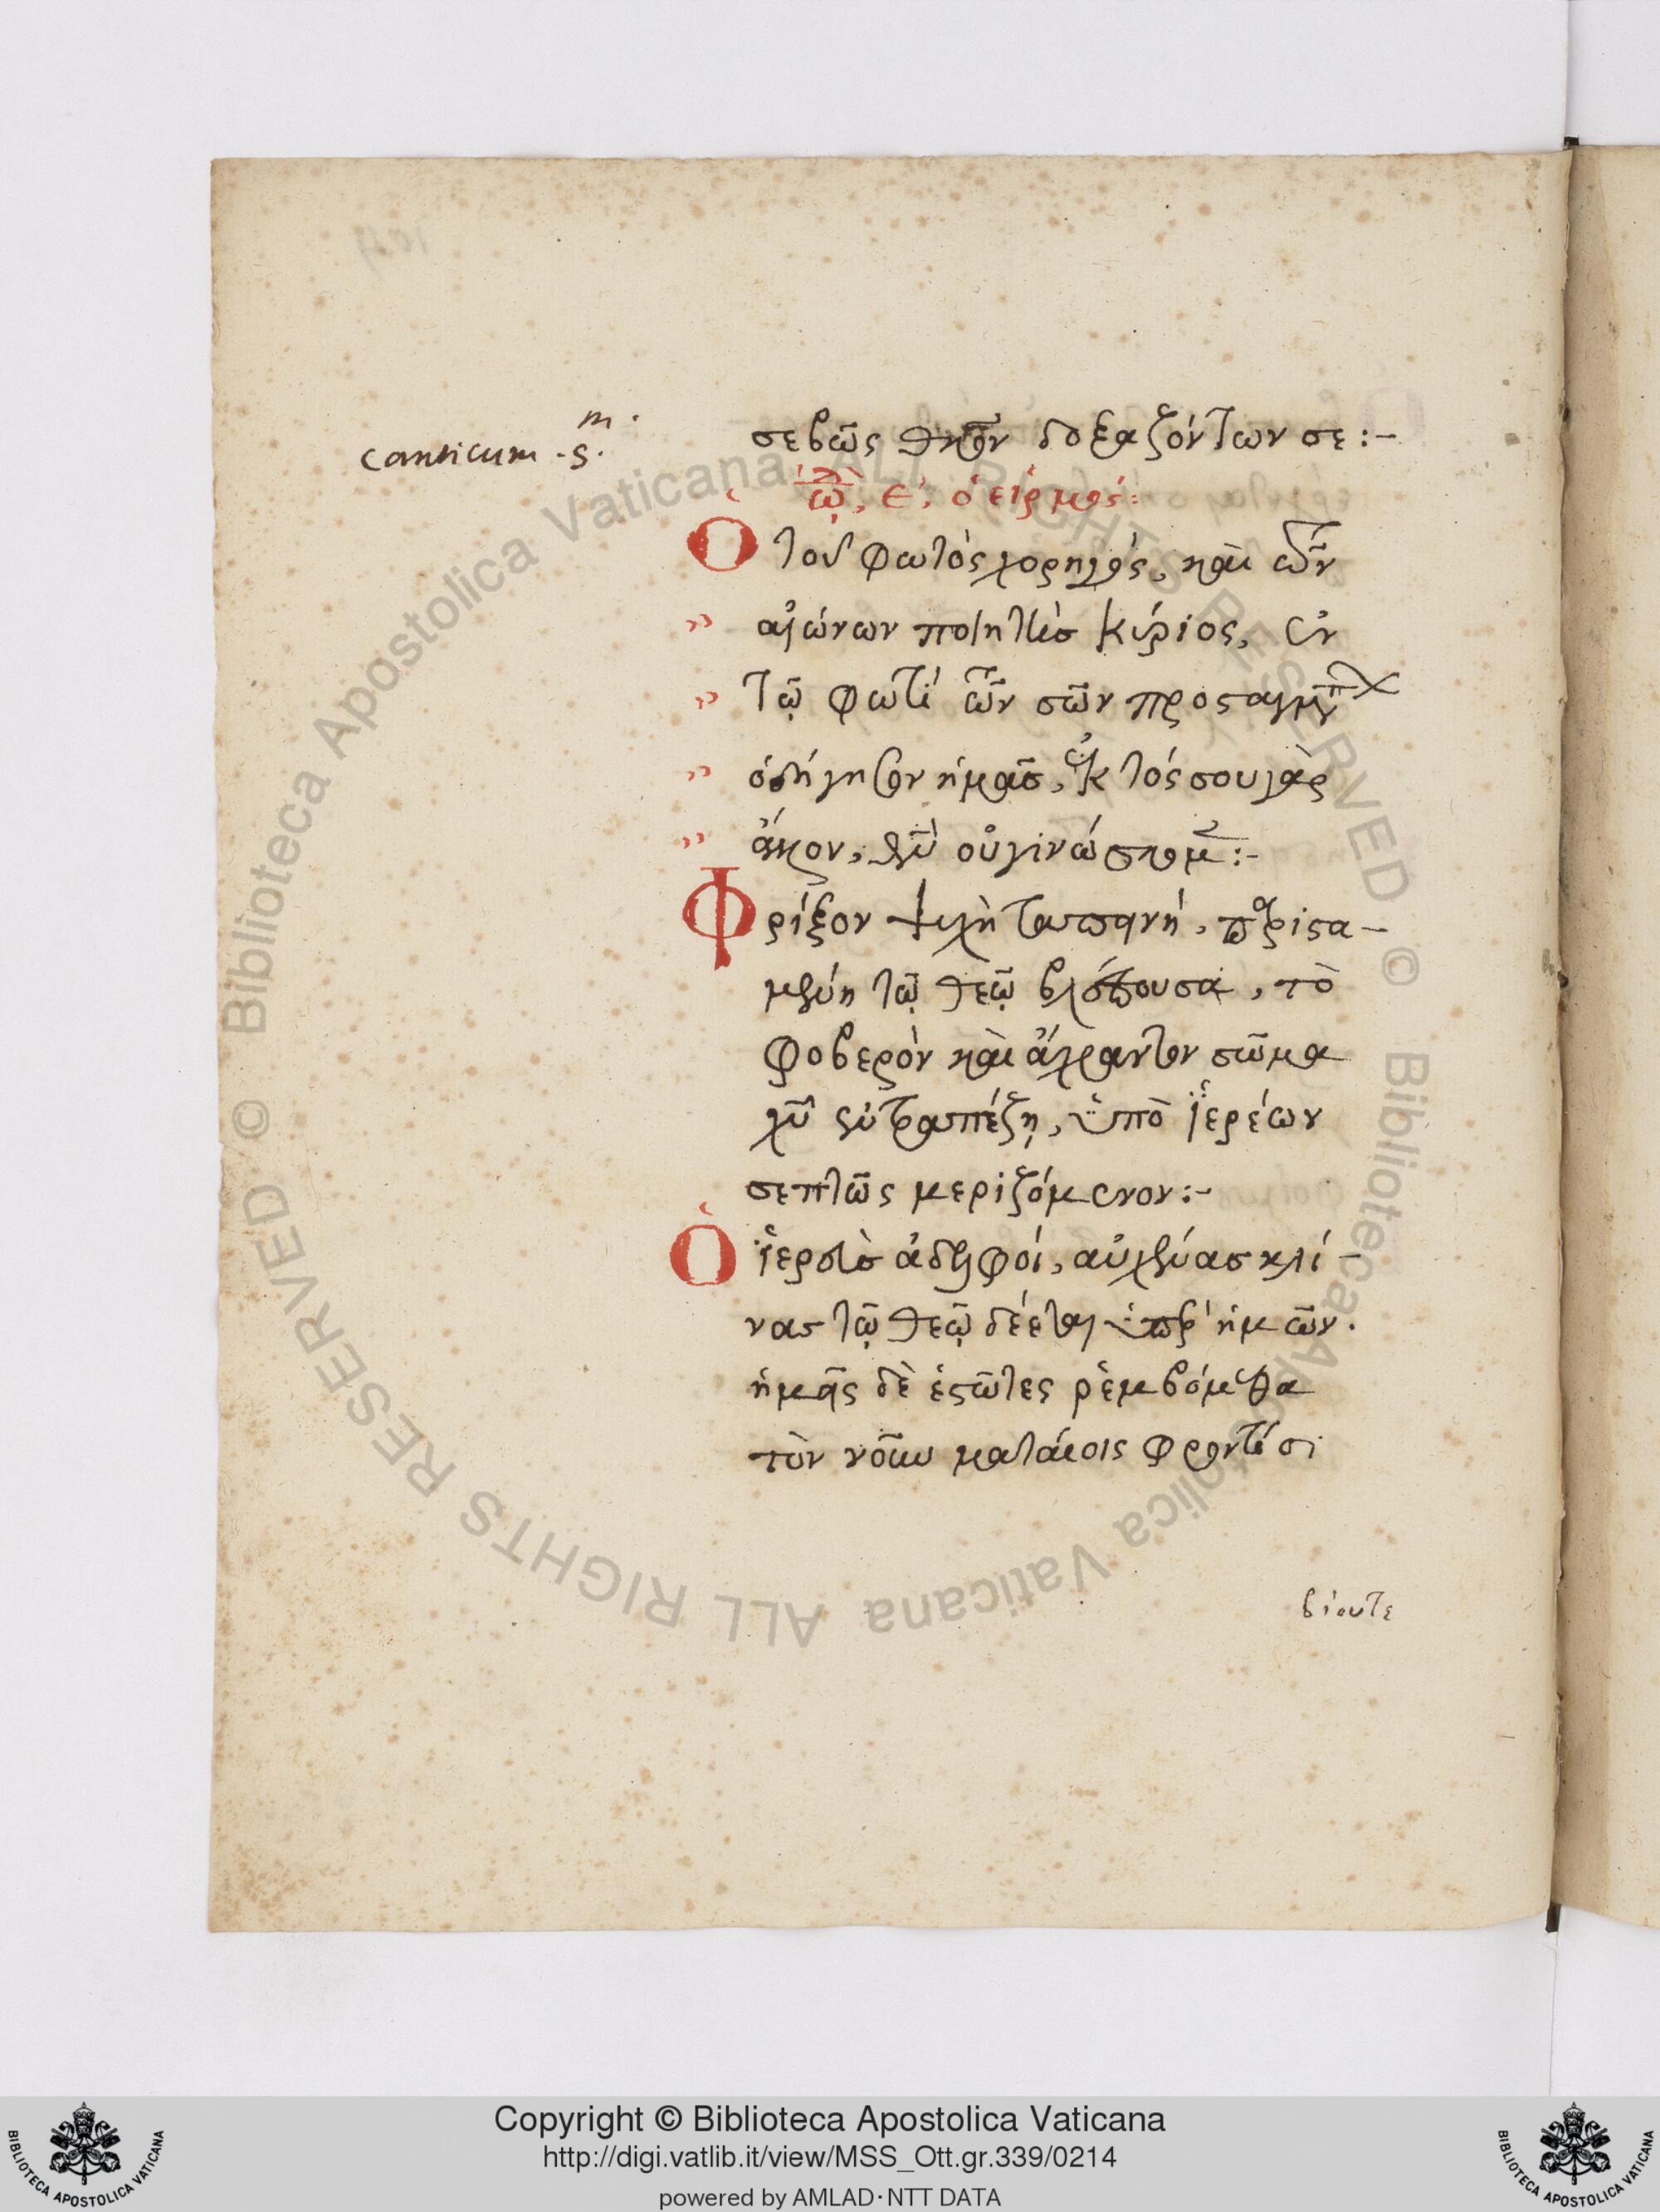 canticum .5.m.
σεβῶς πίστιν δοξαζόντων σε:-
ᾠδὴ, ε΄, ὁ εἱρμός:
Ὁ τοῦ φωτὸς χορηγός, καὶ τῶν
αἰώνων ποιητὴς κύριος, ἐν
τῷ φωτὶ τῶν σῶν προσταγμάτων
ὁδήγησον ἡμᾶς, ἐκτός σου γὰρ
ἄλλον, θεὸν οὐ γινώσκομεν:-
Φρίξον ψυχὴ ταπεινή, παρισα-
μένη τῷ θεῷ βλέπουσα, τὸ
φοβερὸν καὶ ἄχραντον σῶμα
χυ ἐν τραπέζῃ, ὑπὸ ἱερέων
σεπτῶς μεριζόμενον:-
Ὁ ἱερεὺς ἀδελφοί, αὐχένας κλί-
νας τῷ θεῷ δέεται ὑπὲρ ἡμῶν.
ἡμεῖς δὲ ἑστῶτες ῥεμβόμεθα
τὸν νοῦν ματαίοις φροντίσι
βίουτε
Copyright © Biblioteca Apostolica Vaticana
http://digi.vatlib.it/view/MSS_Ott.gr.339/0214
powered by AMLAD·NTT DATA
BIBLIOTECA APOSTOLICA VATICANA
BIBLIOTECA APOSTOLICA VATICANA
Biblioteca Apostolica Vaticana ALL RIGHTS RESERVED ©
Biblioteca Apostolica Vaticana ALL RIGHTS RESERVED ©